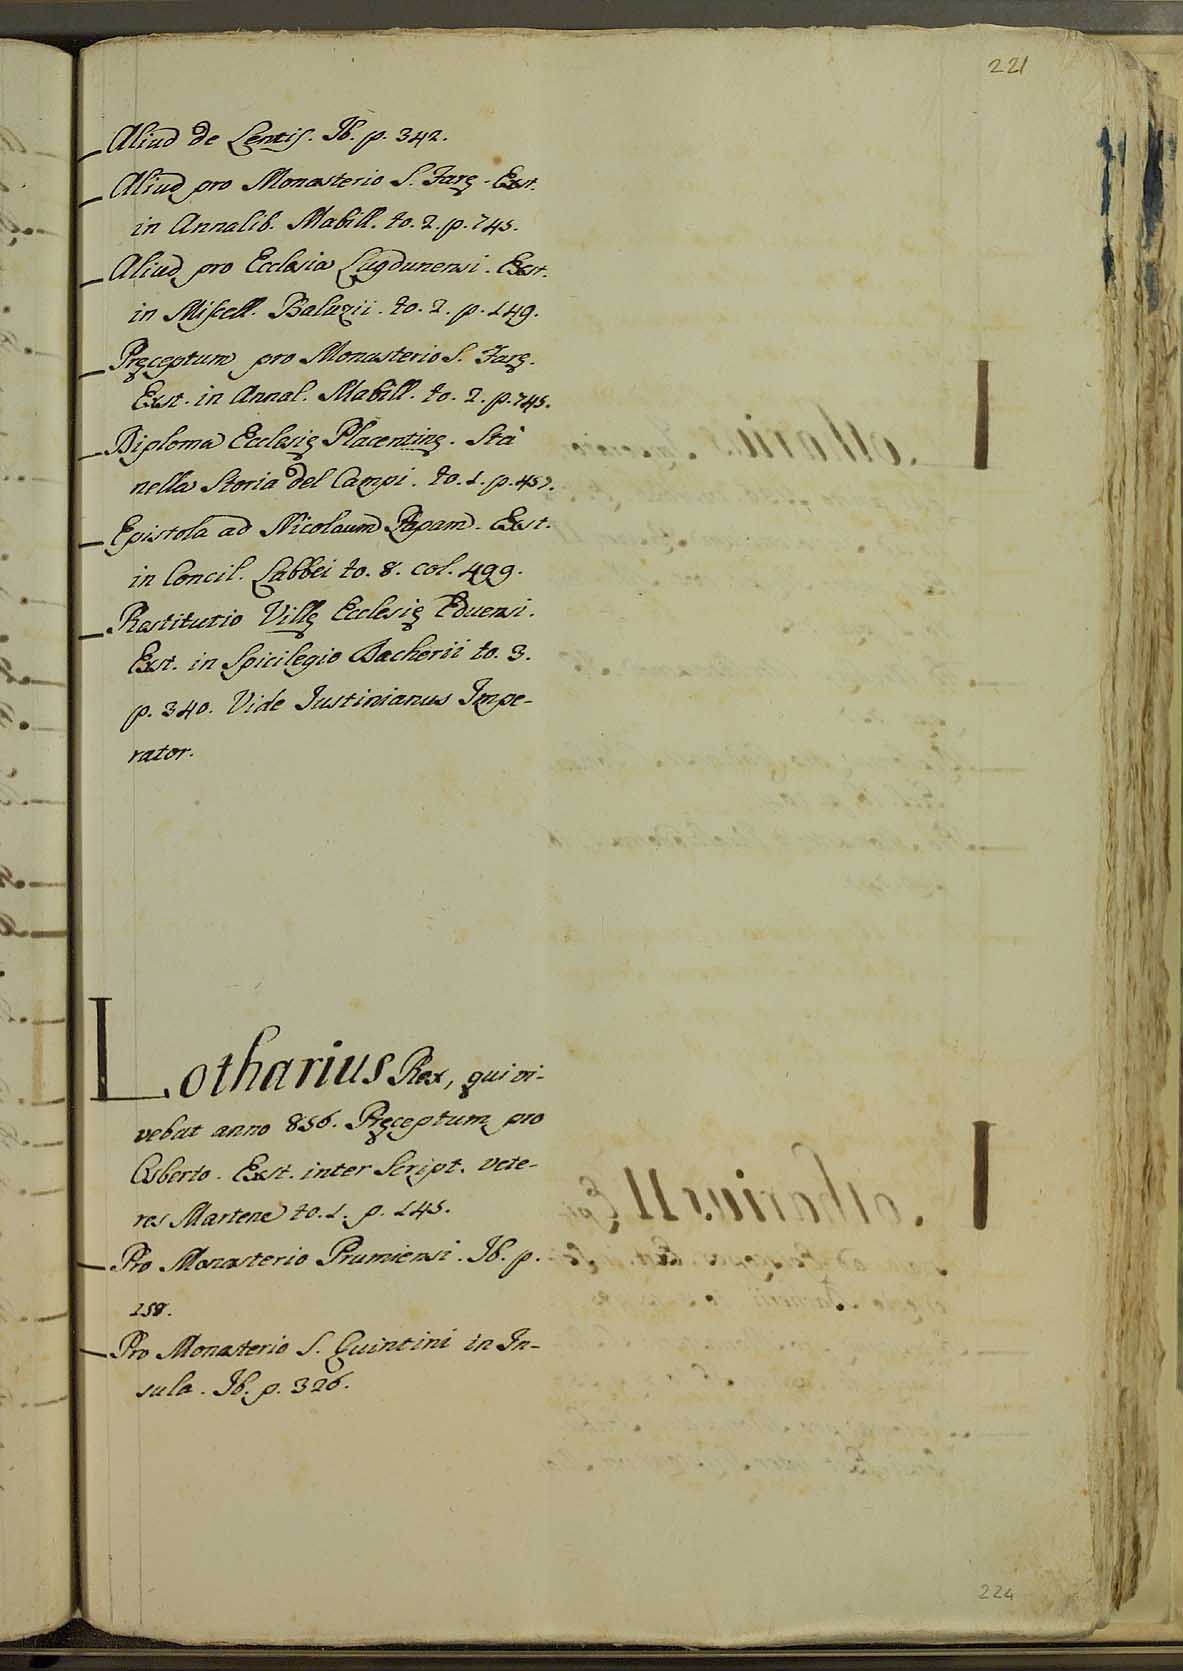 221
Aliud de Lentis. Ib. p. 342.
Aliud pro Monasterio S. Farę. Exst.
in Annalib. Mabill. to. 2. p. 745.
Aliud pro Ecclesia Lugdunensi. Exst.
in Miscell. Baluzii. to. 2. p. 149.
Pręceptum pro Monasterio S. Farę.
Exst. in Annal. Mabill. to. 2. p. 745.
Diploma Ecclesię Placentinę. Stà
nella Storia del Campi. to. 1. p. 457.
Epistola ad Nicolaum Papam. Exst.
in Concil. Labbei to. 8. col. 499.
Restitutio Villę Ecclesię Eduensi.
Exst. in Spicilegio Dacherii to. 3.
p. 340. Vide Iustinianus Impe-
rator.
Lotharius Rex, qui vi-
vebat anno 856. Pręceptum pro
Osberto. Exst. inter Script. vete-
res Martene to. 1. p. 145.
Pro Monasterio Prumiensi. Ib. p.
158.
Pro Monasterio S. Quintini in In-
sula. Ib. p. 326.
224